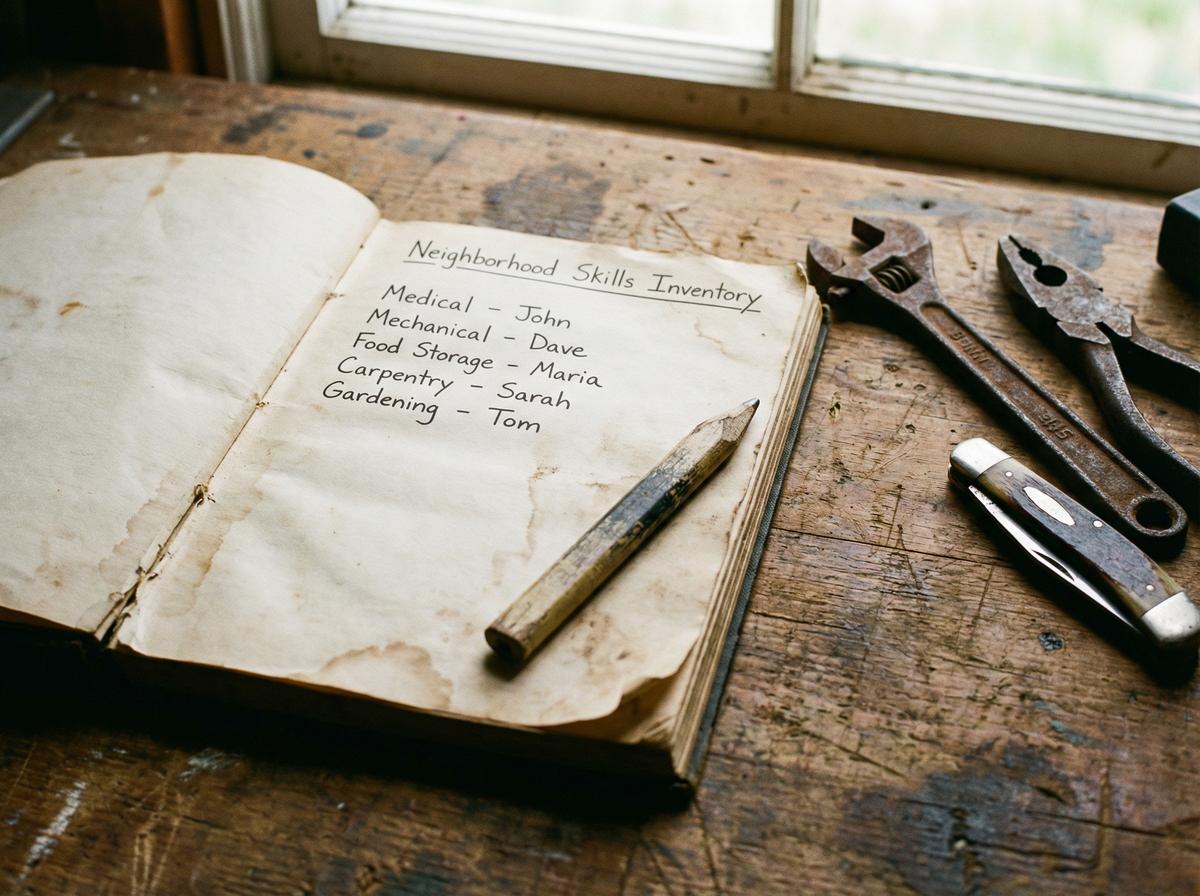 Neighborhood Skills Inventory
Medical – John
Mechanical – Dave
Food Storage – Maria
Carpentry – Sarah
Gardening – Tom